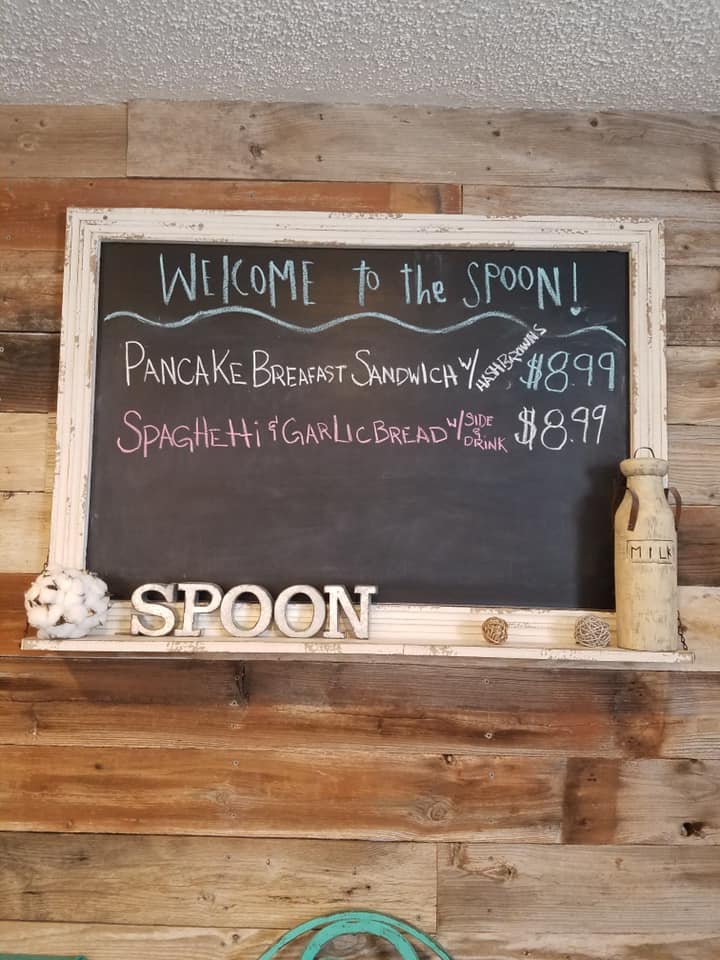 WELCOME to the SPOON!
PANCAKE BREAFAST SANDWICH W/ HASHBROWNS $8.99
SPAGHETTI & GARLIC BREAD W/ SIDE & DRINK $8.99
MILK
SPOON